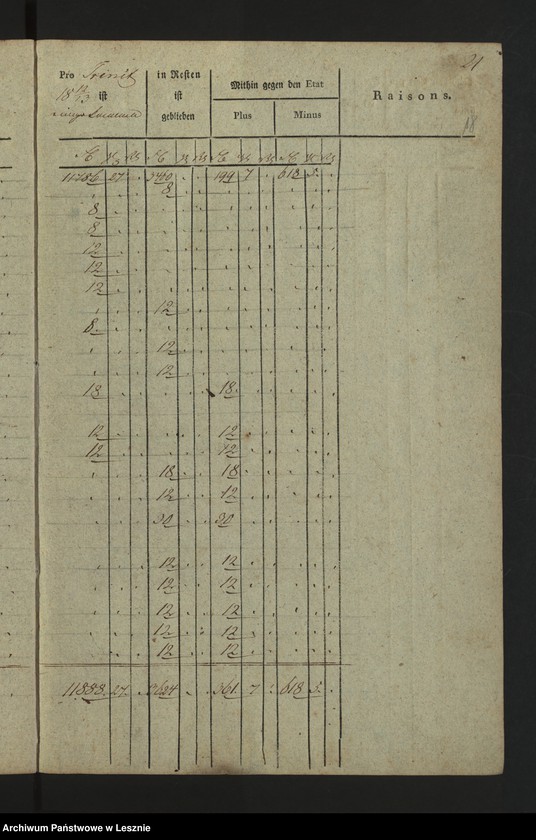 21
Pro Trinit
18 12/13 ist
in Resten
ist
geblieben
Mithin gegen den Etat
Plus
Minus
Raisons.
18
27 . . 199 7 . 618 3 .
8
8
8
12
12
12
12
8
12
12
18 18
12 12
12 12
18 18
12 12
30 30
12 12
12 12
12 12
12 12
12 12
11888 27 . 3624 . . 361 7 . 618 3 .
Archiwum Państwowe w Lesznie